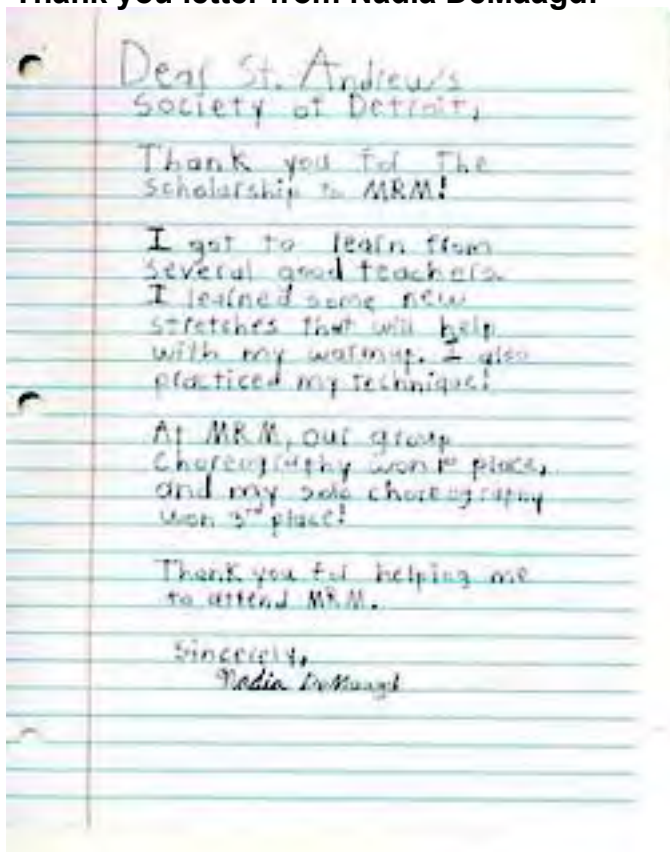 Thank you letter from Nadia DeMaagd:
Dear St. Andrew's
Society of Detroit,
Thank you for The
Scholarship to MRM!
I got to learn from
several good teachers.
I learned some new
stretches that will help
with my warmup. I also
practiced my technique!
At MRM, our group
Choreography won 1st place,
and my solo choreography
won 3rd place!
Thank you for helping me
to attend MRM.
Sincerely,
Nadia DeMaagd